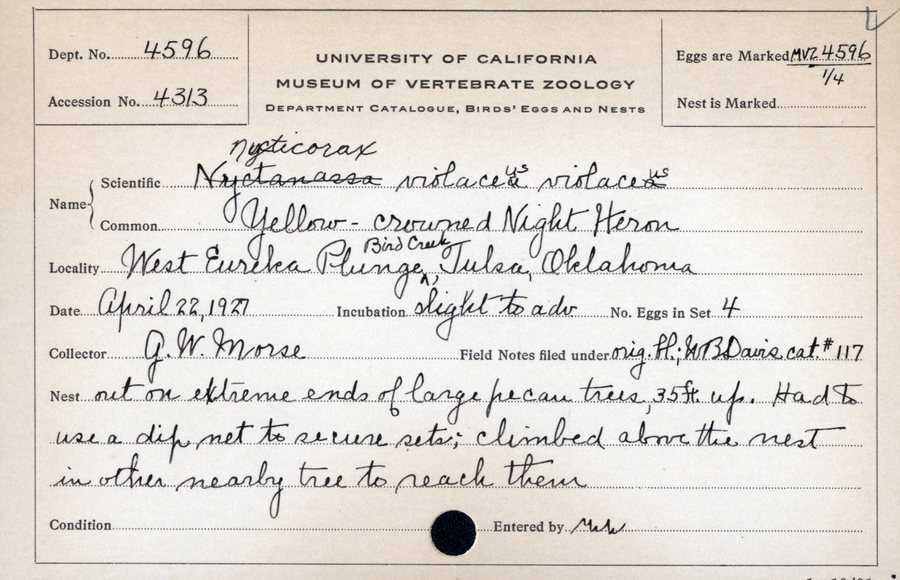 Dept. No. 4596
Accession No. 4313
UNIVERSITY OF CALIFORNIA
MUSEUM OF VERTEBRATE ZOOLOGY
DEPARTMENT CATALOGUE, BIRDS' EGGS AND NESTS
Eggs are Marked MVZ 4596
1/4
Nest is Marked
Nycticorax
Name { Scientific Nyctanassa violacea us violacea us
Common Yellow-crowned Night Heron
Bird Creek
Locality West Eureka Plunge, Tulsa, Oklahoma
Date April 22, 1927 Incubation slight to adv No. Eggs in Set 4
Collector G. W. Morse Field Notes filed under orig. fl.; WBDavis cat. #117
Nest out on extreme ends of large pecan trees, 35 ft. up. Had to
use a dip net to secure sets; climbed above the nest
in other nearby tree to reach them
Condition Entered by